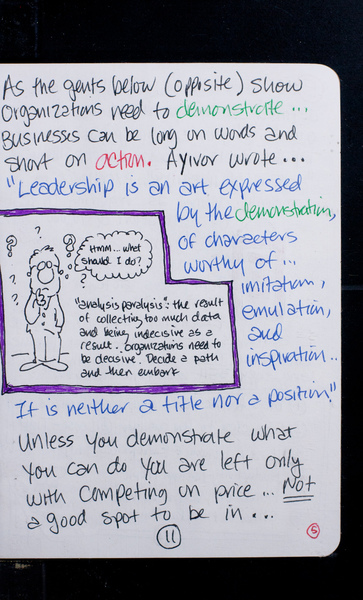 As the gents below (opposite) show
Organizations need to demonstrate...
Businesses can be long on words and
short on action. Ayivor wrote...
"Leadership is an art expressed
by the demonstration,
of characters
worthy of...
imitation,
emulation,
and
inspiration..
? ? ? ? ? ?
Hmm... what
should I do?
"analysis paralysis": the result
of collecting too much data
and being indecisive as a
result. Organizations need to
be decisive. Decide a path
and then embark
It is neither a title nor a position."
Unless you demonstrate what
you can do you are left only
with competing on price... Not
a good spot to be in...
11
5